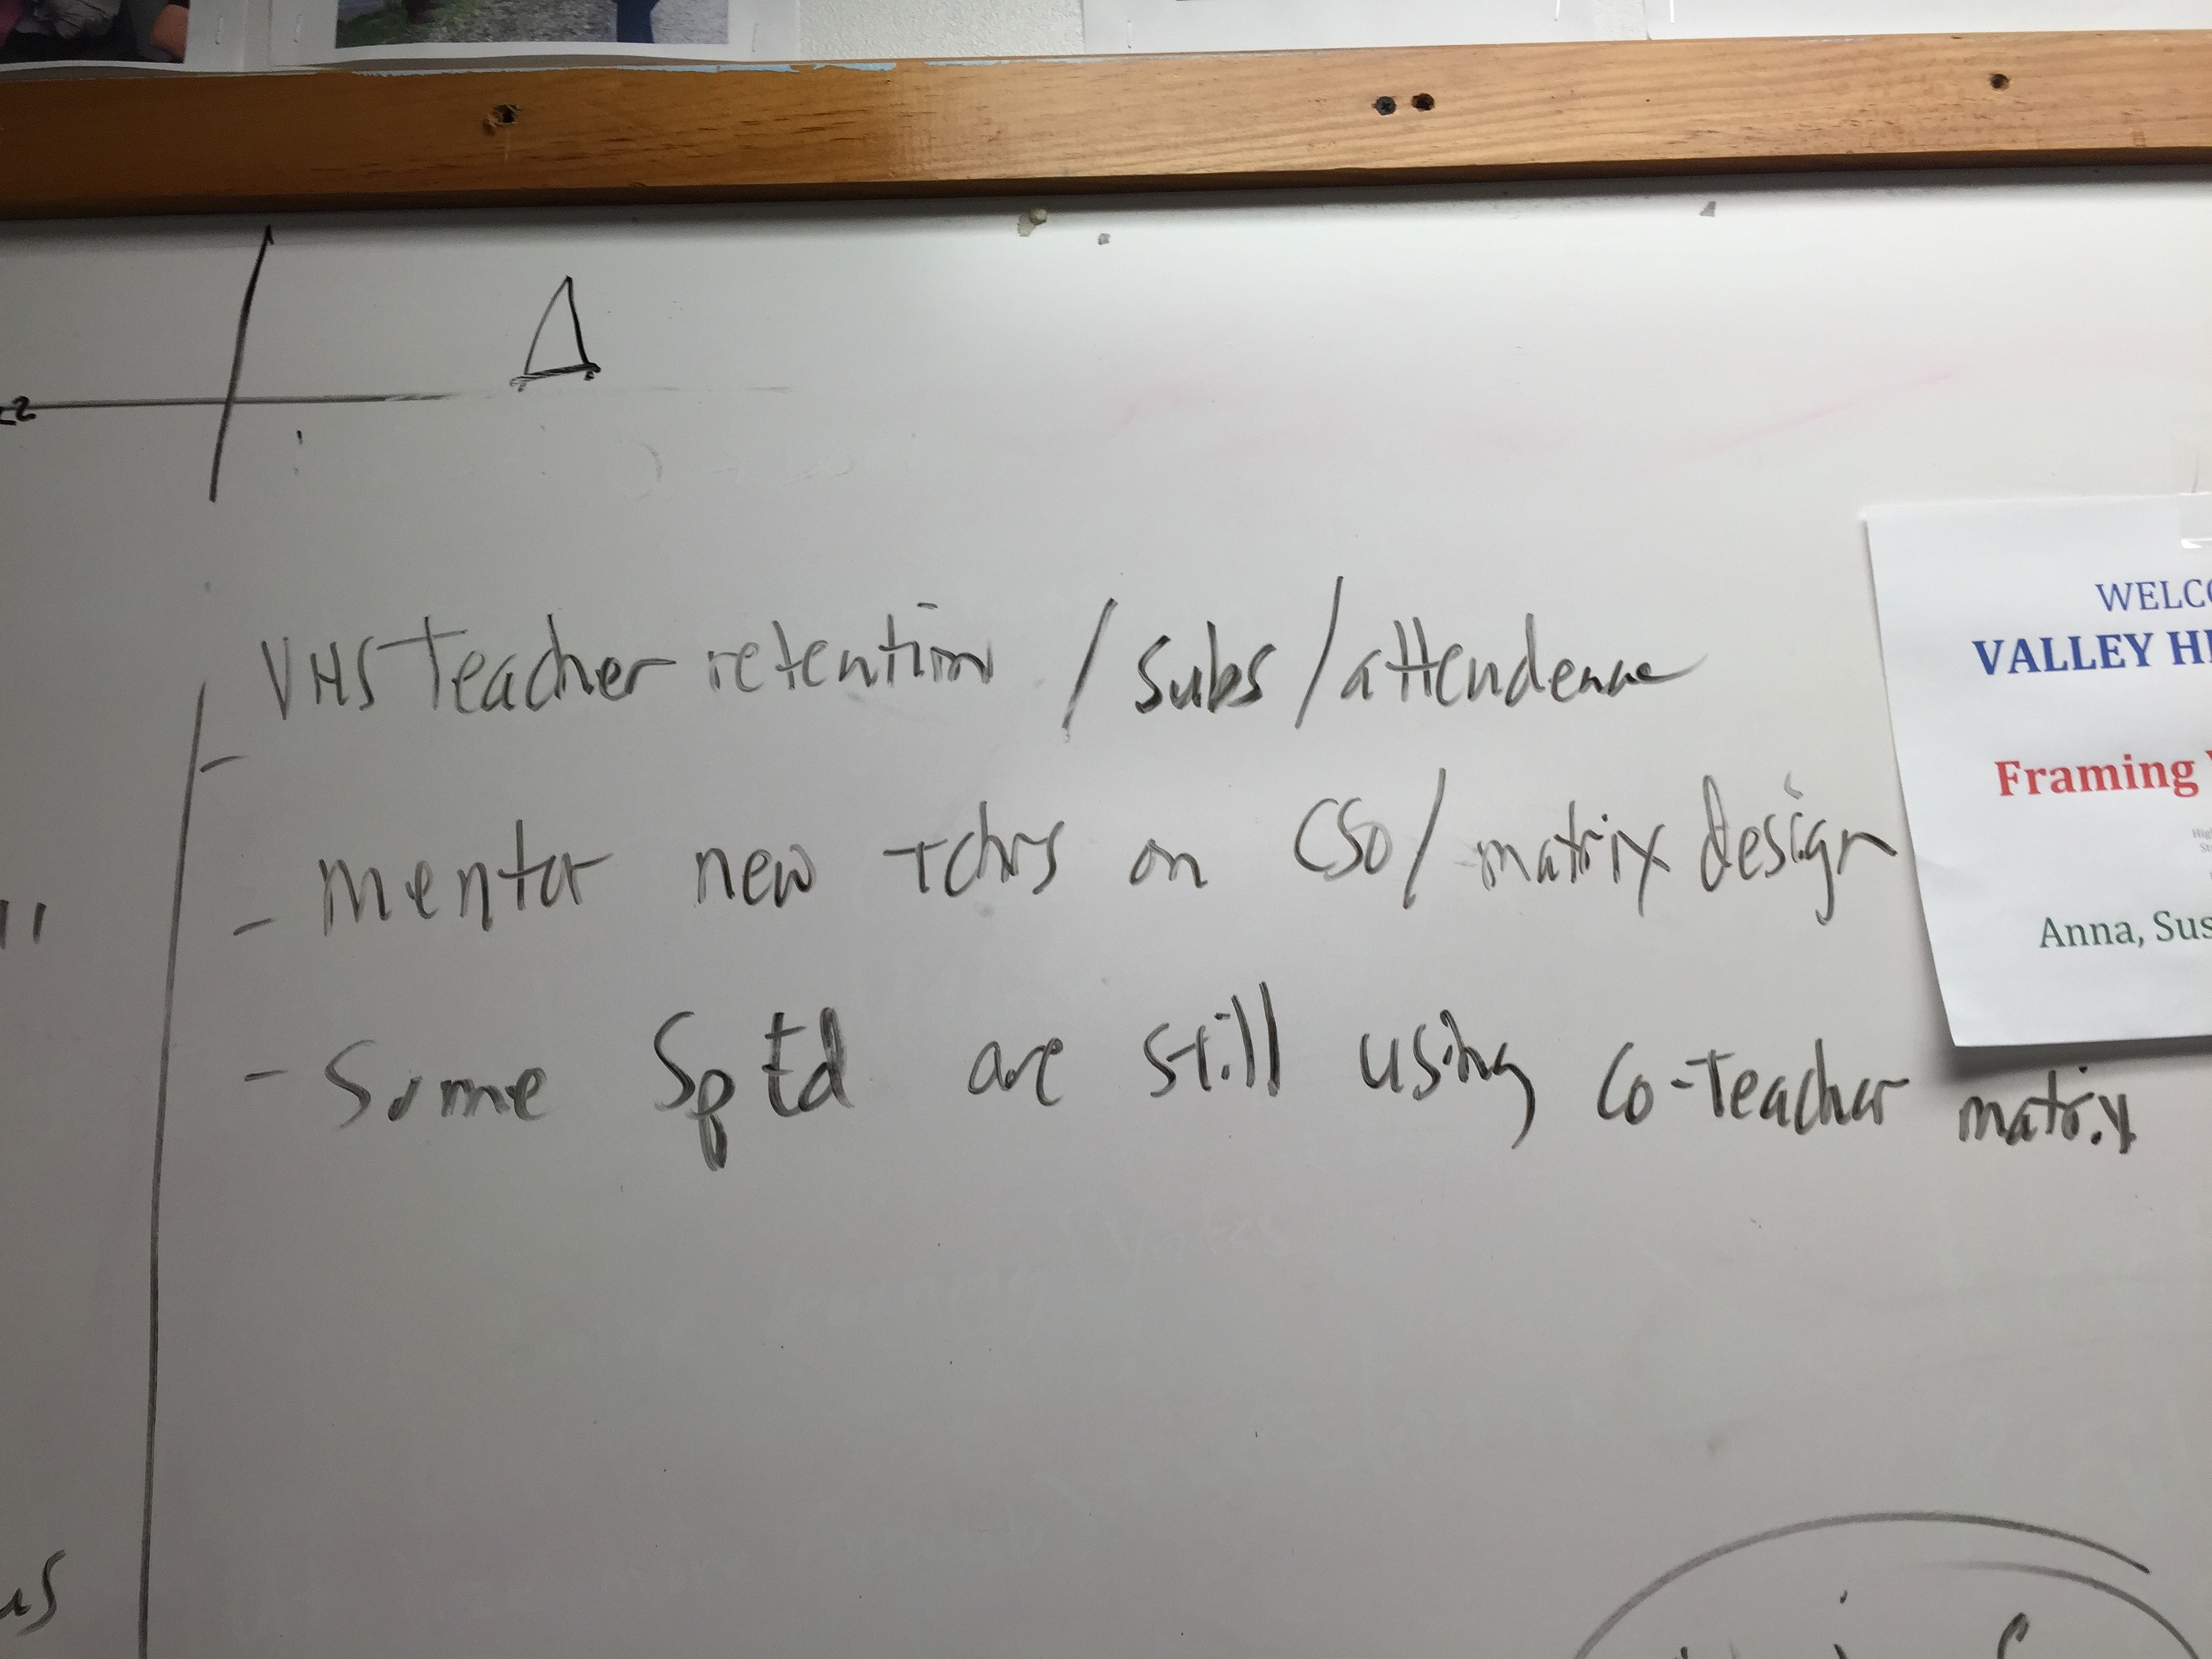 VHS Teacher retention / Subs / attendence
- mentor new Tchrs on CSO / matrix design
- Some SpEd are still using Co-Teacher matrix
WELCO
VALLEY HI
Framing
Anna, Sus